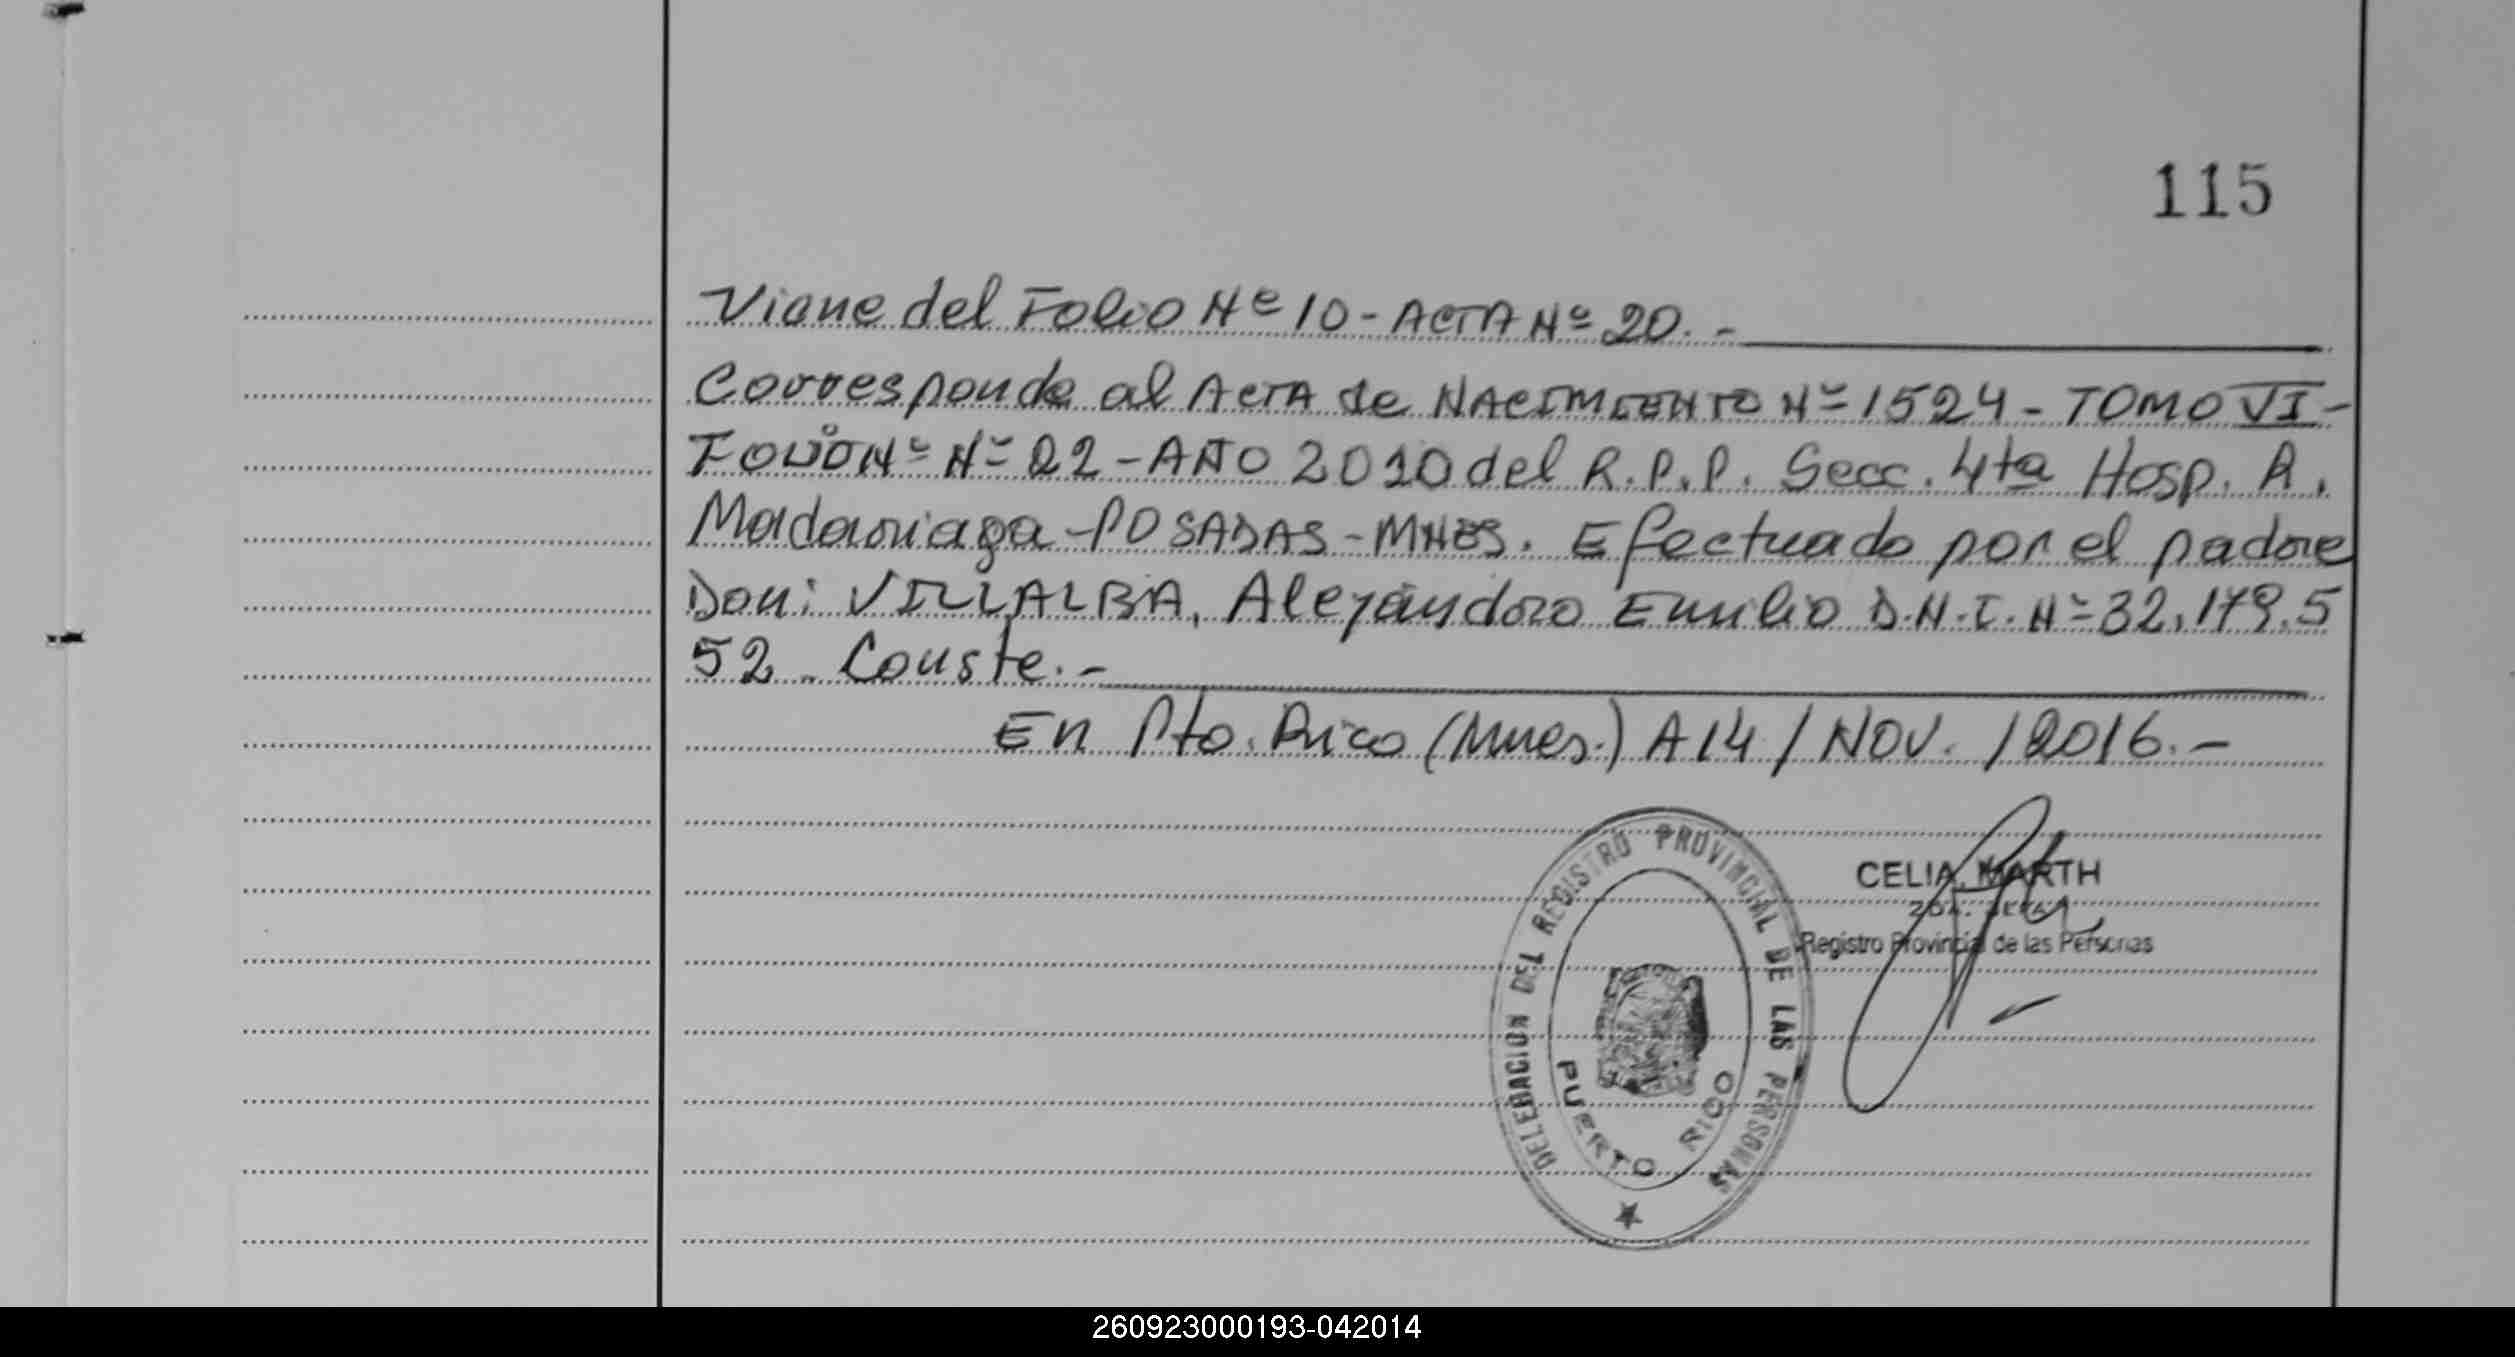 115
Viene del Folio Nº 10 - ACTA Nº 20. -
Corresponde al ACTA de NACIMIENTO Nº 1524 - TOMO VI -
FOLIO Nº Nº 22 - AÑO 2010 del R.P.P. Secc. 4ta Hosp. R.
Madariaga - POSADAS - MNES. Efectuado por el padre
Don: VILLALBA, Alejandro Emilio D.N.I. Nº 32.179.5
52. Conste. -
En Pto. Rico (Mnes.) A 14 / NOV. / 2016. -
DELEGACION DEL REGISTRO PROVINCIAL DE LAS PERSONAS
PUERTO RICO
CELIA MARTH
Registro Provincial de las Personas
260923000193-042014